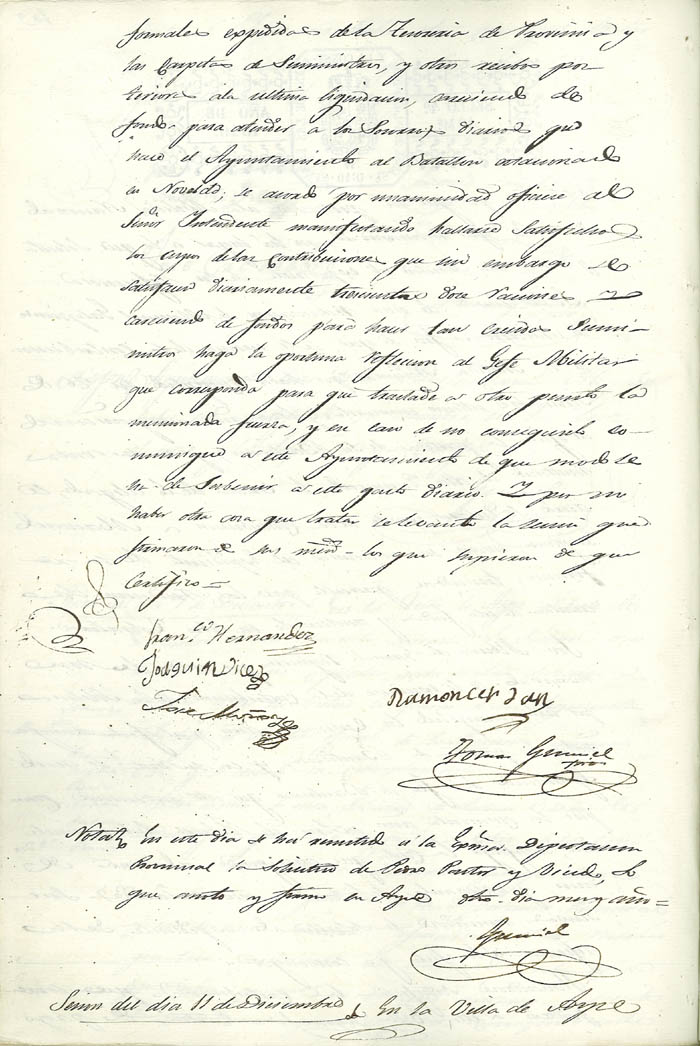 formales expedidas de la Tesoreria de Provincia y
las Carpetas de Suministros, y otros recibos pos-
teriores á la ultima liquidacion, careciendo de
fondos para atender a los Socorros diarios que
hace el Ayuntamiento al Batallon estacionado
en Novelda; se acordó por unanimidad oficiar al
Señor Intendente manifestando hallarse satisfechos
los cupos de las Contribuciones, que sin embargo se
satisfacen diariamente trescientas doce raciones y
careciendo de fondos para hacer tan crecidos Sumi-
nistros haga la oportuna reflecsion al Gefe Militar
que corresponda para que traslade á otro punto la
mencionada fuerza, y en caso de no conseguirlo co-
munique á este Ayuntamiento de que modo se
ha de Subvenir á este gasto diario. Y por no
haber otra cosa que tratar se levantó la sesion que
firmaron de sus mrds. los que supieron de que
Certifico =
Fran.co Hernandez
Joaquin Vicedo
Jose Muñoz
Ramon Cerdan
Tomas
Nota En este dia se há remitido á la Exma. Diputacion
Provincial la Solicitud de Pedro Pastor y Vicedo, lo
que anoto y firmo en Aspe dho. dia mes y año =
Sesion del dia 11 de Diciembre En la Villa de Aspe